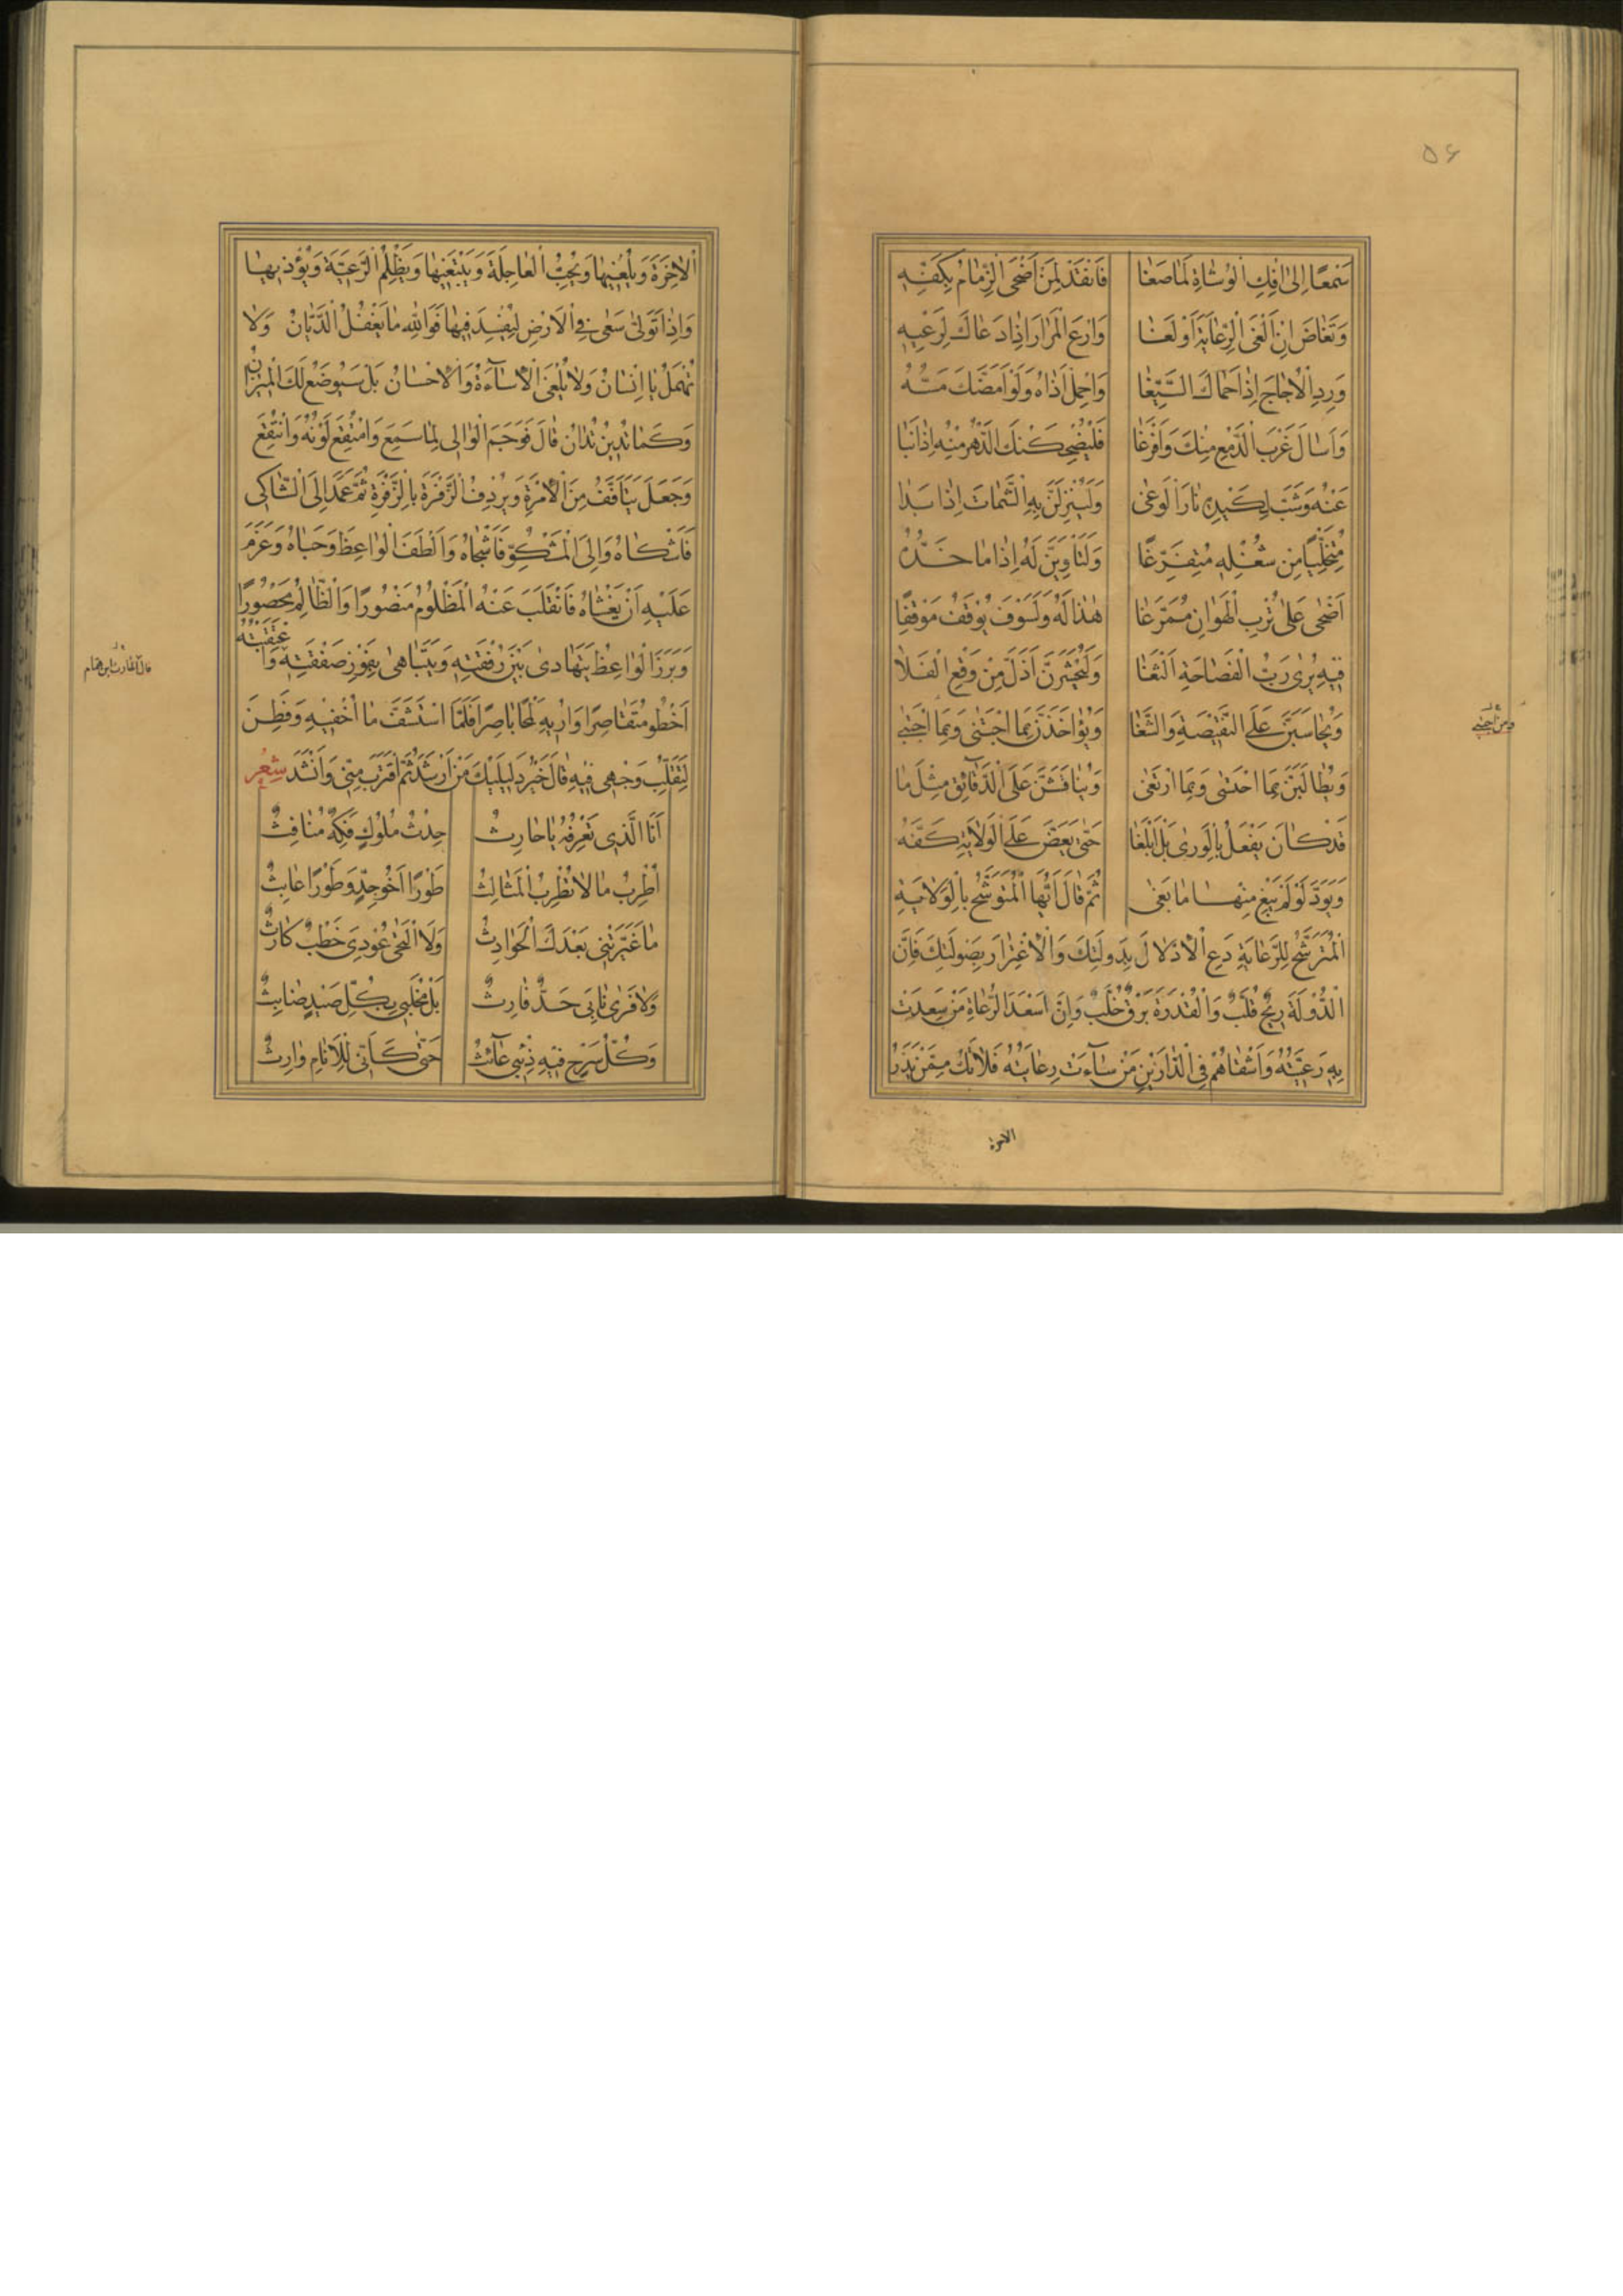 ۵۶
سَمْعًا اِلىٰ اِفْكِ الْوُشَاةِ لَمَا صَغَا فَانْقَدْ لِمَنْ اَضْحَى الزِّمَامُ بِكَفِّهِ
وَتَغَاضَ اِنْ اَلْغَى الرِّعَايَةَ اَوْ لَغَا وَارْعَ الْمُرَارَ اِذَا دَعَاكَ لِرَعْيِهِ
وَرِدِ الْاُجَاجَ اِذَا حَمَاكَ السَّيِّغَا وَاحْمِلْ اَذَاهُ وَلَوْ اَمَضَّكَ مَسُّهُ
وَاَسَالَ غَرْبَ الدَّمْعِ مِنْكَ وَاَفْرَغَا فَلَيُضْحِكَنْكَ الدَّهْرُ مِنْهُ اِذَا نَبَا
عَنْهُ وَشَبَّ لِكَيْدِهِ نَارَ الْوَغىٰ وَلَيُنْزِلَنَّ بِهِ الشَّمَاتَ اِذَا بَدَا
مُتَخَلِّيًا مِنْ شُغْلِهِ مُتَفَرِّغًا وَلَتَاْوِيَنَّ لَهُ اِذَا مَا خَدُّهُ
اَضْحىٰ عَلىٰ تُرْبِ الْهَوَانِ مُمَرَّغَا هٰذَا لَهُ وَلَسَوْفَ يُوْقَفُ مَوْقِفًا
فِيْهِ يُرىٰ رَبُّ الْفَصَاحَةِ اَلْثَغَا وَلَيُحْشَرَنَّ اَذَلَّ مِنْ فَقْعِ الْفَلَا
وَيُحَاسَبَنَّ عَلَى النَّقِيْصَةِ وَالشَّغَا وَيُؤَاخَذَنَّ بِمَا اجْتَنىٰ وَبِمَا اجْتَبىٰ
وَيُطَالَبَنَّ بِمَا احْتَسٰى وَبِمَا ارْتَغىٰ وَيُنَاقَشَنَّ عَلَى الدَّقَائِقِ مِثْلَ مَا
قَدْ كَانَ يَفْعَلُ بِالْوَرىٰ بَلْ اَبْلَغَا حَتّٰى يَعَضَّ عَلَى الْوَلَايَةِ كَفَّهُ
وَيَوَدَّ لَوْ لَمْ يَبْغِ مِنْهَا مَا بَغىٰ ثُمَّ قَالَ اَيُّهَا الْمُتَوَشِّحُ بِالْوِلَايَةِ
الْمُتَرَشِّحُ لِلرِّعَايَةِ دَعِ الْاِدْلَالَ بِدَوْلَتِكَ وَالْاِغْتِرَارَ بِصَوْلَتِكَ فَاِنَّ
الدَّوْلَةَ رِيْحٌ قُلَّبٌ وَالْقُدْرَةَ بَرْقٌ خُلَّبٌ وَاِنَّ اَسْعَدَ الرُّعَاةِ مَنْ سَعِدَتْ
بِهِ رَعِيَّتُهُ وَاَشْقَاهُمْ فِي الدَّارَيْنِ مَنْ سَآءَتْ رِعَايَتُهُ فَلَا تَكُ مِمَّنْ يَذَرُ
الاخرة
الْاٰخِرَةَ وَيُلْغِيْهَا وَيُحِبُّ الْعَاجِلَةَ وَيَبْتَغِيْهَا وَيَظْلِمُ الرَّعِيَّةَ وَيُؤْذِيْهَا
وَاِذَا تَوَلّٰى سَعٰى فِي الْاَرْضِ لِيُفْسِدَ فِيْهَا فَوَاللهِ مَا يَغْفُلُ الدَّيَّانُ وَلَا
تُهْمَلُ يَا اِنْسَانُ وَلَا تُلْغَى الْاِسَآءَةُ وَالْاِحْسَانُ بَلْ سَيُوضَعُ لَكَ الْمِيْزَانُ
وَكَمَا تَدِيْنُ تُدَانُ قَالَ فَوَجَمَ الْوَالِي لِمَا سَمِعَ وَامْتُقِعَ لَوْنُهُ وَانْتُقِعَ
وَجَعَلَ يَتَاَفَّفُ مِنَ الْاِمْرَةِ وَيُرْدِفُ الزَّفْرَةَ بِالزَّفْرَةِ ثُمَّ عَمَدَ اِلَى الشَّاكِي
فَاَشْكَاهُ وَاِلَى الْمَشْكُوِّ فَاَشْجَاهُ وَاَلْطَفَ الْوَاعِظَ وَحَبَاهُ وَعَزَمَ
عَلَيْهِ اَنْ يَغْشَاهُ فَانْقَلَبَ عَنْهُ الْمَظْلُوْمُ مَنْصُورًا وَالظَّالِمُ مَحْصُورًا
وَبَرَزَ الْوَاعِظُ يَتَهَادىٰ بَيْنَ رُفْقَتِهِ وَيَتَبَاهىٰ بِفَوْزِ صَفْقَتِهِ وَاعْتَقَبْتُهُ
قال الحارث بن همام
اَخْطُو مُتَقَاصِرًا وَاُرِيْهِ لَمْحًا بَاصِرًا فَلَمَّا اسْتَشَفَّ مَا اُخْفِيْهِ وَفَطِنَ
لِتَقَلُّبِ وَجْهِي فِيْهِ قَالَ خَيْرُ دَلِيْلَيْكَ مَنْ اَرْشَدَ ثُمَّ اقْتَرَبَ مِنِّي وَاَنْشَدَ شِعْر
اَنَا الَّذِي تَعْرِفُهُ يَا حَارِثُ حِدْثُ مُلُوكٍ فَكِهٌ مُنَافِثُ
اُطْرِبُ مَا لَا تُطْرِبُ الْمَثَالِثُ طَوْرًا اَخُو جِدٍّ وَطَوْرًا عَابِثُ
مَا غَيَّرَتْنِي بَعْدَكَ الْحَوَادِثُ وَلَا الْتَحىٰ عُودِي خَطْبٌ كَارِثُ
وَلَا فَرىٰ نَابِي حَدٌّ فَارِثُ بَلْ مِخْلَبِي بِكُلِّ صَيْدٍ ضَابِثُ
وَكُلُّ سَرْحٍ فِيْهِ ذِئْبِي عَآئِثُ حَتّٰى كَاَنِّي لِلْاَنَامِ وَارِثُ